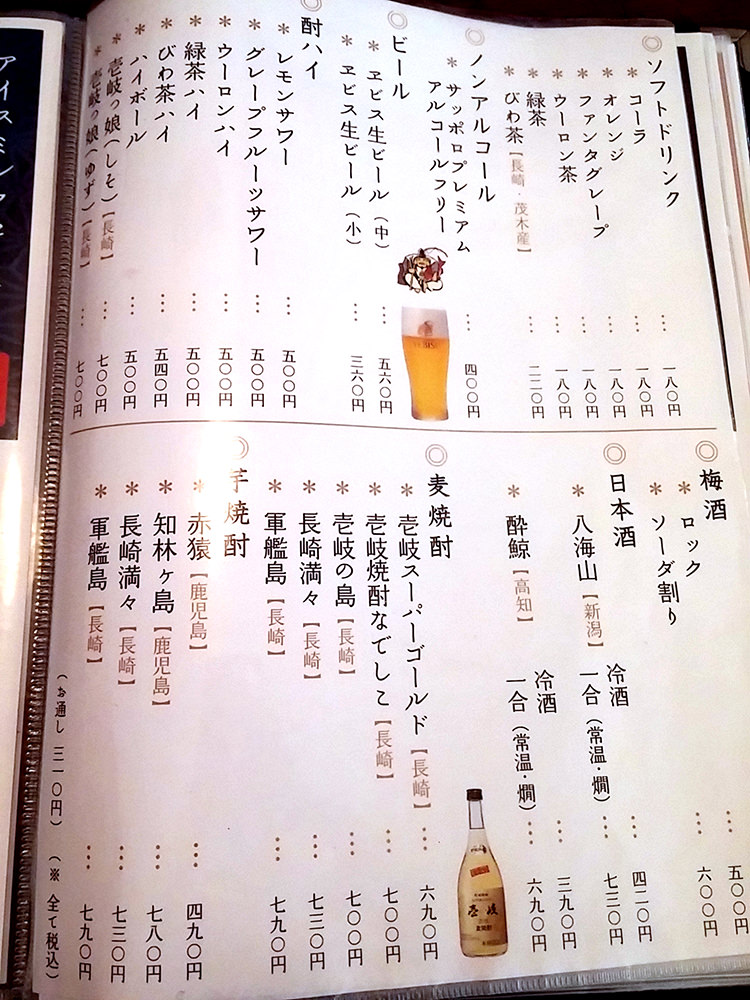 ◎ソフトドリンク
＊コーラ … 一八〇円
＊オレンジ … 一八〇円
＊ファンタグレープ … 一八〇円
＊ウーロン茶 … 一八〇円
＊緑茶 … 一八〇円
＊びわ茶【長崎・茂木産】 … 二二〇円
◎ノンアルコール
＊サッポロプレミアム
アルコールフリー … 四〇〇円
◎ビール
＊ヱビス生ビール（中） … 五六〇円
＊ヱビス生ビール（小） … 三六〇円
◎酎ハイ
＊レモンサワー … 五〇〇円
＊グレープフルーツサワー … 五〇〇円
＊ウーロンハイ … 五〇〇円
＊緑茶ハイ … 五〇〇円
＊びわ茶ハイ … 五四〇円
＊ハイボール … 五〇〇円
＊壱岐っ娘（しそ）【長崎】 … 七〇〇円
＊壱岐っ娘（ゆず）【長崎】 … 七〇〇円
◎梅酒
＊ロック … 五〇〇円
＊ソーダ割り … 六〇〇円
◎日本酒
＊八海山【新潟】 冷酒 … 四二〇円
一合（常温・燗） … 七三〇円
＊酔鯨【高知】 冷酒 … 三九〇円
一合（常温・燗） … 六九〇円
◎麦焼酎
＊壱岐スーパーゴールド【長崎】 … 六九〇円
＊壱岐焼酎なでしこ【長崎】 … 七〇〇円
＊壱岐の島【長崎】 … 七〇〇円
＊長崎満々【長崎】 … 七三〇円
＊軍艦島【長崎】 … 七九〇円
◎芋焼酎
＊赤猿【鹿児島】 … 四九〇円
＊知林ヶ島【鹿児島】 … 七八〇円
＊長崎満々【長崎】 … 七三〇円
＊軍艦島【長崎】 … 七九〇円
（お通し 三一〇円）（※ 全て税込）
壱岐